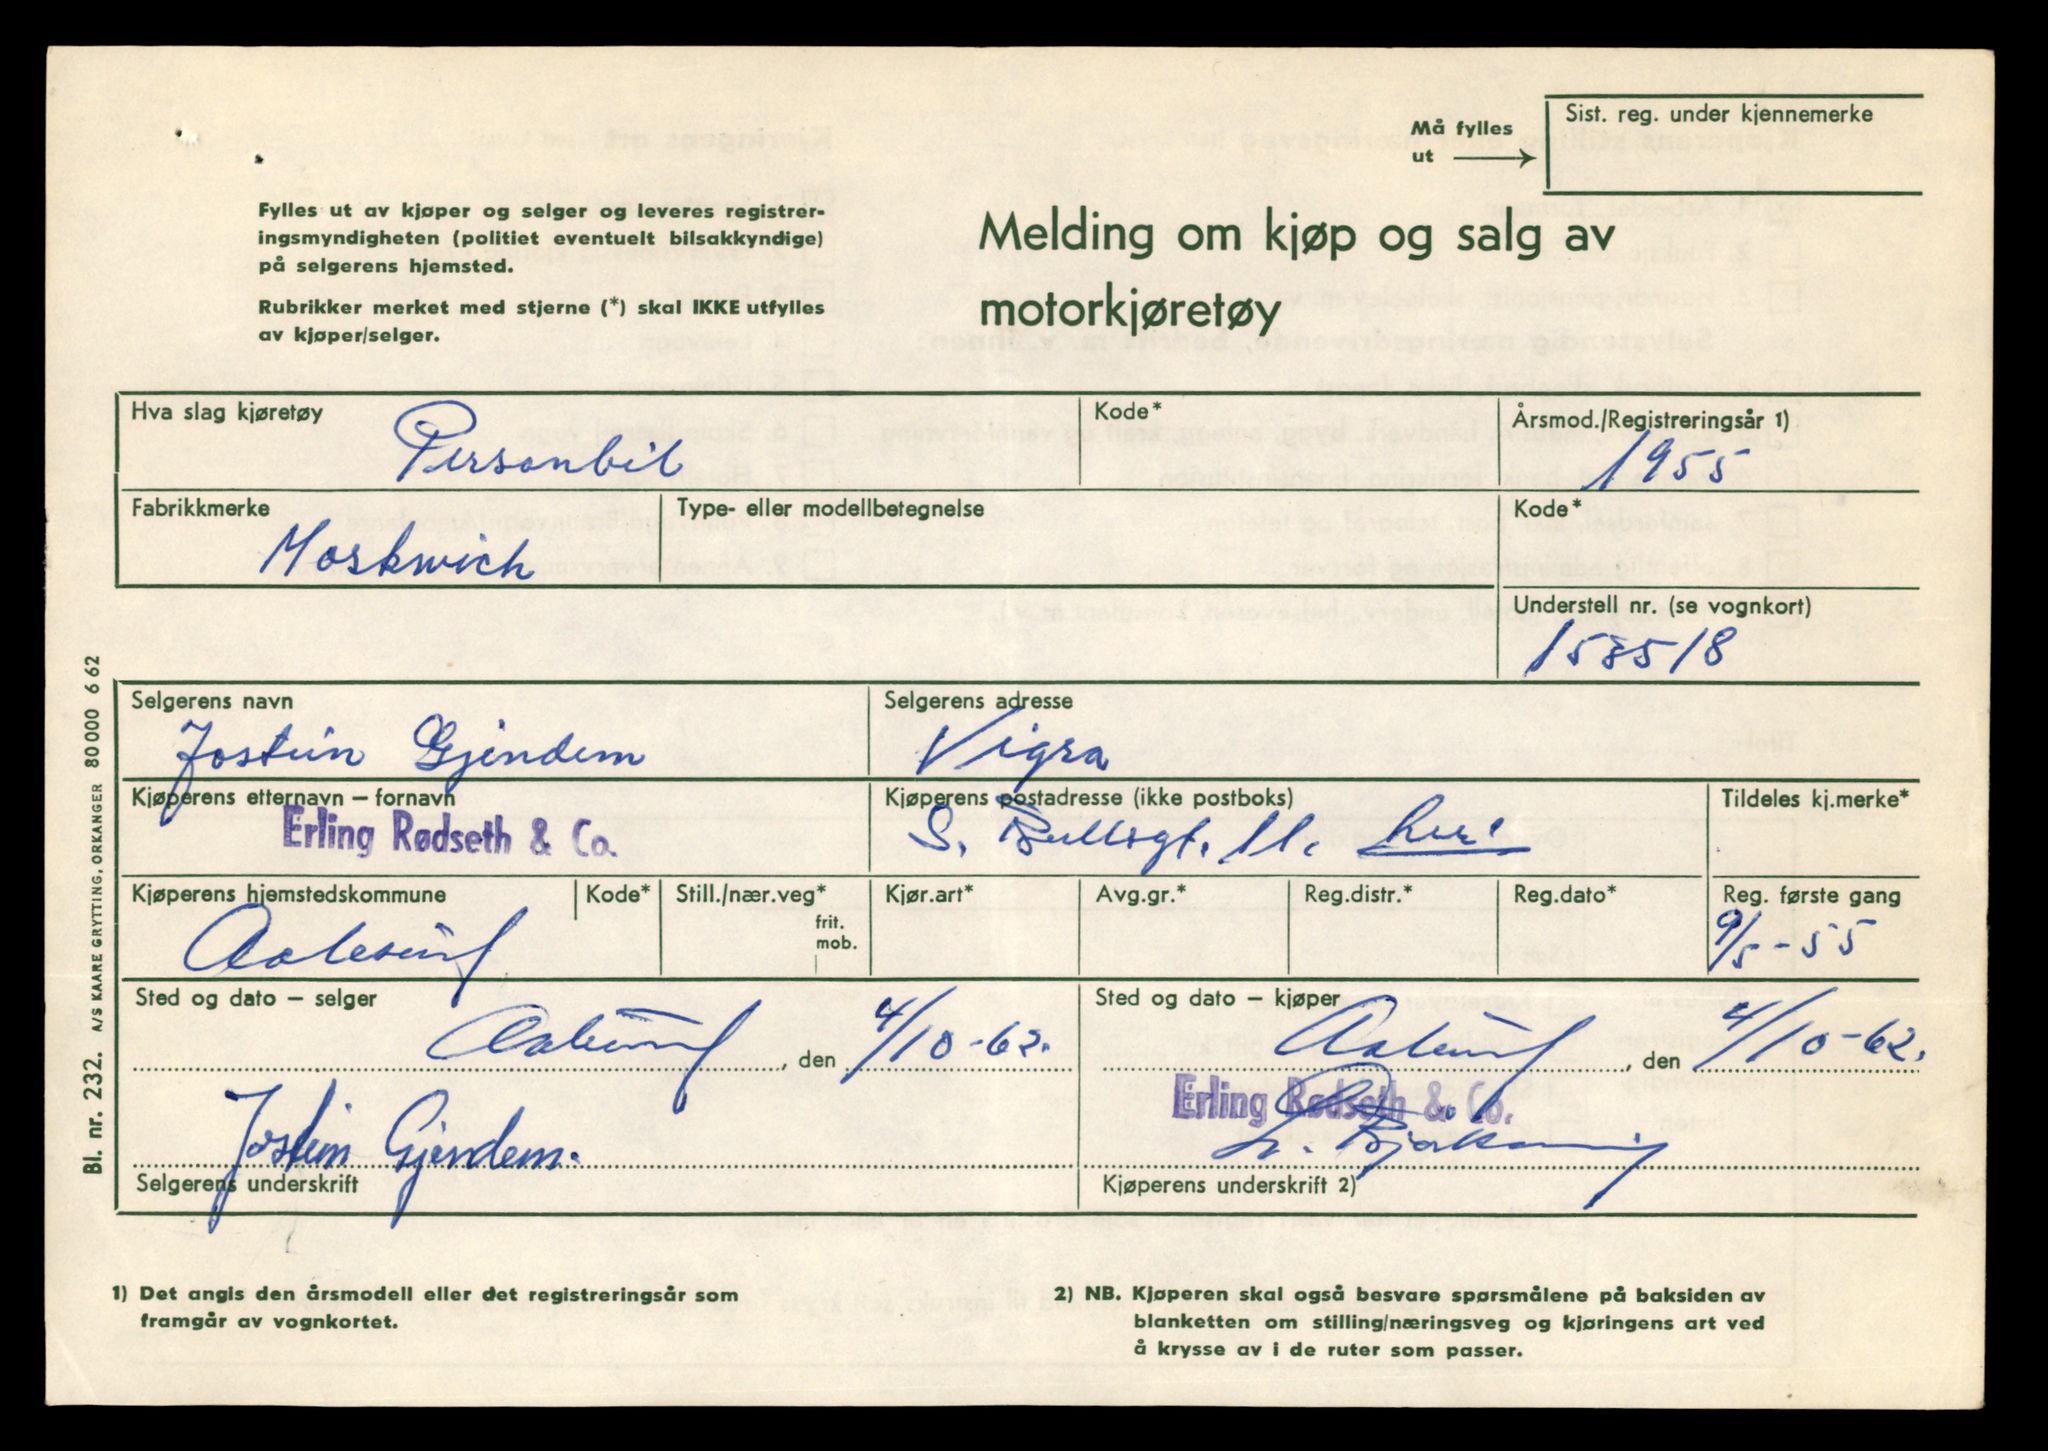 Må fylles ut
Sist. reg. under kjennemerke
Fylles ut av kjøper og selger og leveres registrer-
ingsmyndigheten (politiet eventuelt bilsakkyndige)
på selgerens hjemsted.
Rubrikker merket med stjerne (*) skal IKKE utfylles
av kjøper/selger.
Melding om kjøp og salg av
motorkjøretøy
Hva slag kjøretøy Personbil
Kode*
Årsmod./Registreringsår 1) 1955
Fabrikkmerke Moskwich
Type- eller modellbetegnelse
Kode*
Understell nr. (se vognkort)
158518
Selgerens navn
Jostein Gjendem
Selgerens adresse
Vigra
Kjøperens etternavn – fornavn
Erling Rødseth & Co.
Kjøperens postadresse (ikke postboks)
S. Bullsgt. 11. her
Tildeles kj.merke*
Kjøperens hjemstedskommune
Aalesund
Kode*
Still./nær.veg*
frit.
mob.
Kjør.art*
Avg.gr.*
Reg.distr.*
Reg.dato*
Reg. første gang
9/5-55
Sted og dato – selger
Aalesund, den 4/10-62.
Sted og dato – kjøper
Aalesund, den 4/10-62.
Erling Rødseth & Co.
Jostein Gjendem.
Selgerens underskrift
Kjøperens underskrift 2)
1) Det angis den årsmodell eller det registreringsår som
framgår av vognkortet.
2) NB. Kjøperen skal også besvare spørsmålene på baksiden av
blanketten om stilling/næringsveg og kjøringens art ved
å krysse av i de ruter som passer.
Bl. nr. 232. A/S KAARE GRYTTING, ORKANGER 80000 6 62